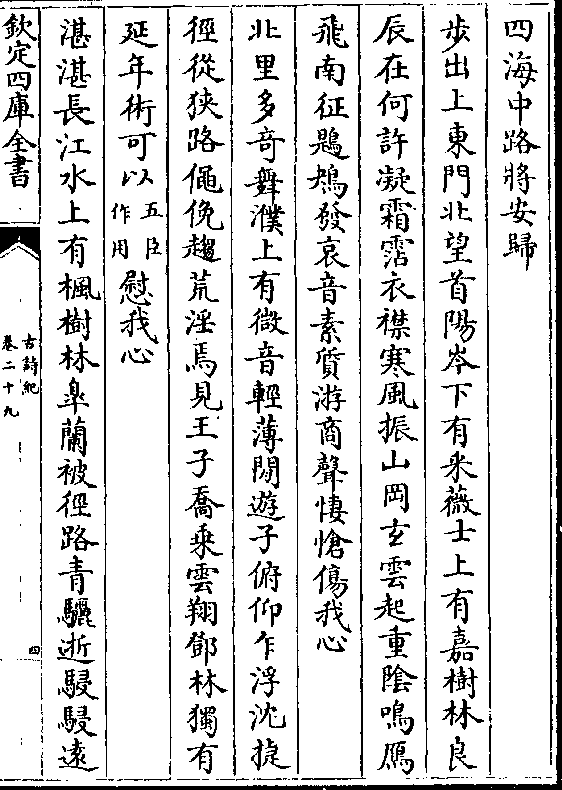 四海中路將安歸
步出上東門北望首陽岑下有采薇士上有嘉樹林良
辰在何許凝霜霑衣襟寒風振山岡玄雲起重陰鳴鴈
飛南征鶗鴂發哀音素質游商聲悽愴傷我心
北里多奇舞濮上有微音輕薄閒遊子俯仰乍浮沈捷
徑從狹路僶俛趨荒淫焉見王子喬乗雲翔鄧林獨有
延年術可以五臣作用慰我心
湛湛長江水上有楓樹林臯蘭被徑路青驪逝駸駸逺
欽定四庫全書
古詩紀
卷二十九
四